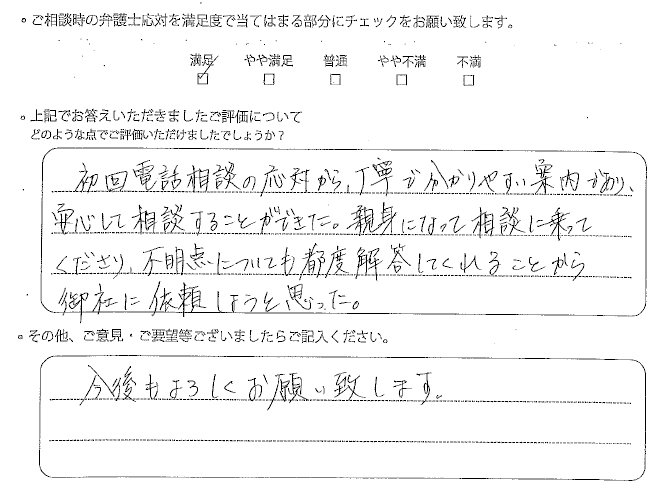 。ご相談時の弁護士応対を満足度で当てはまる部分にチェックをお願い致します。
満足 やや満足 普通 やや不満 不満
☑ □ □ □ □
。上記でお答えいただきましたご評価について
どのような点でご評価いただけましたでしょうか？
初回電話相談の応対から、丁寧で分かりやすい案内であり、
安心して相談することができた。親身になって相談に乗って
くださり、不明点についても都度解答してくれることから
御社に依頼しようと思った。
。その他、ご意見・ご要望等ございましたらご記入ください。
今後もよろしくお願い致します。